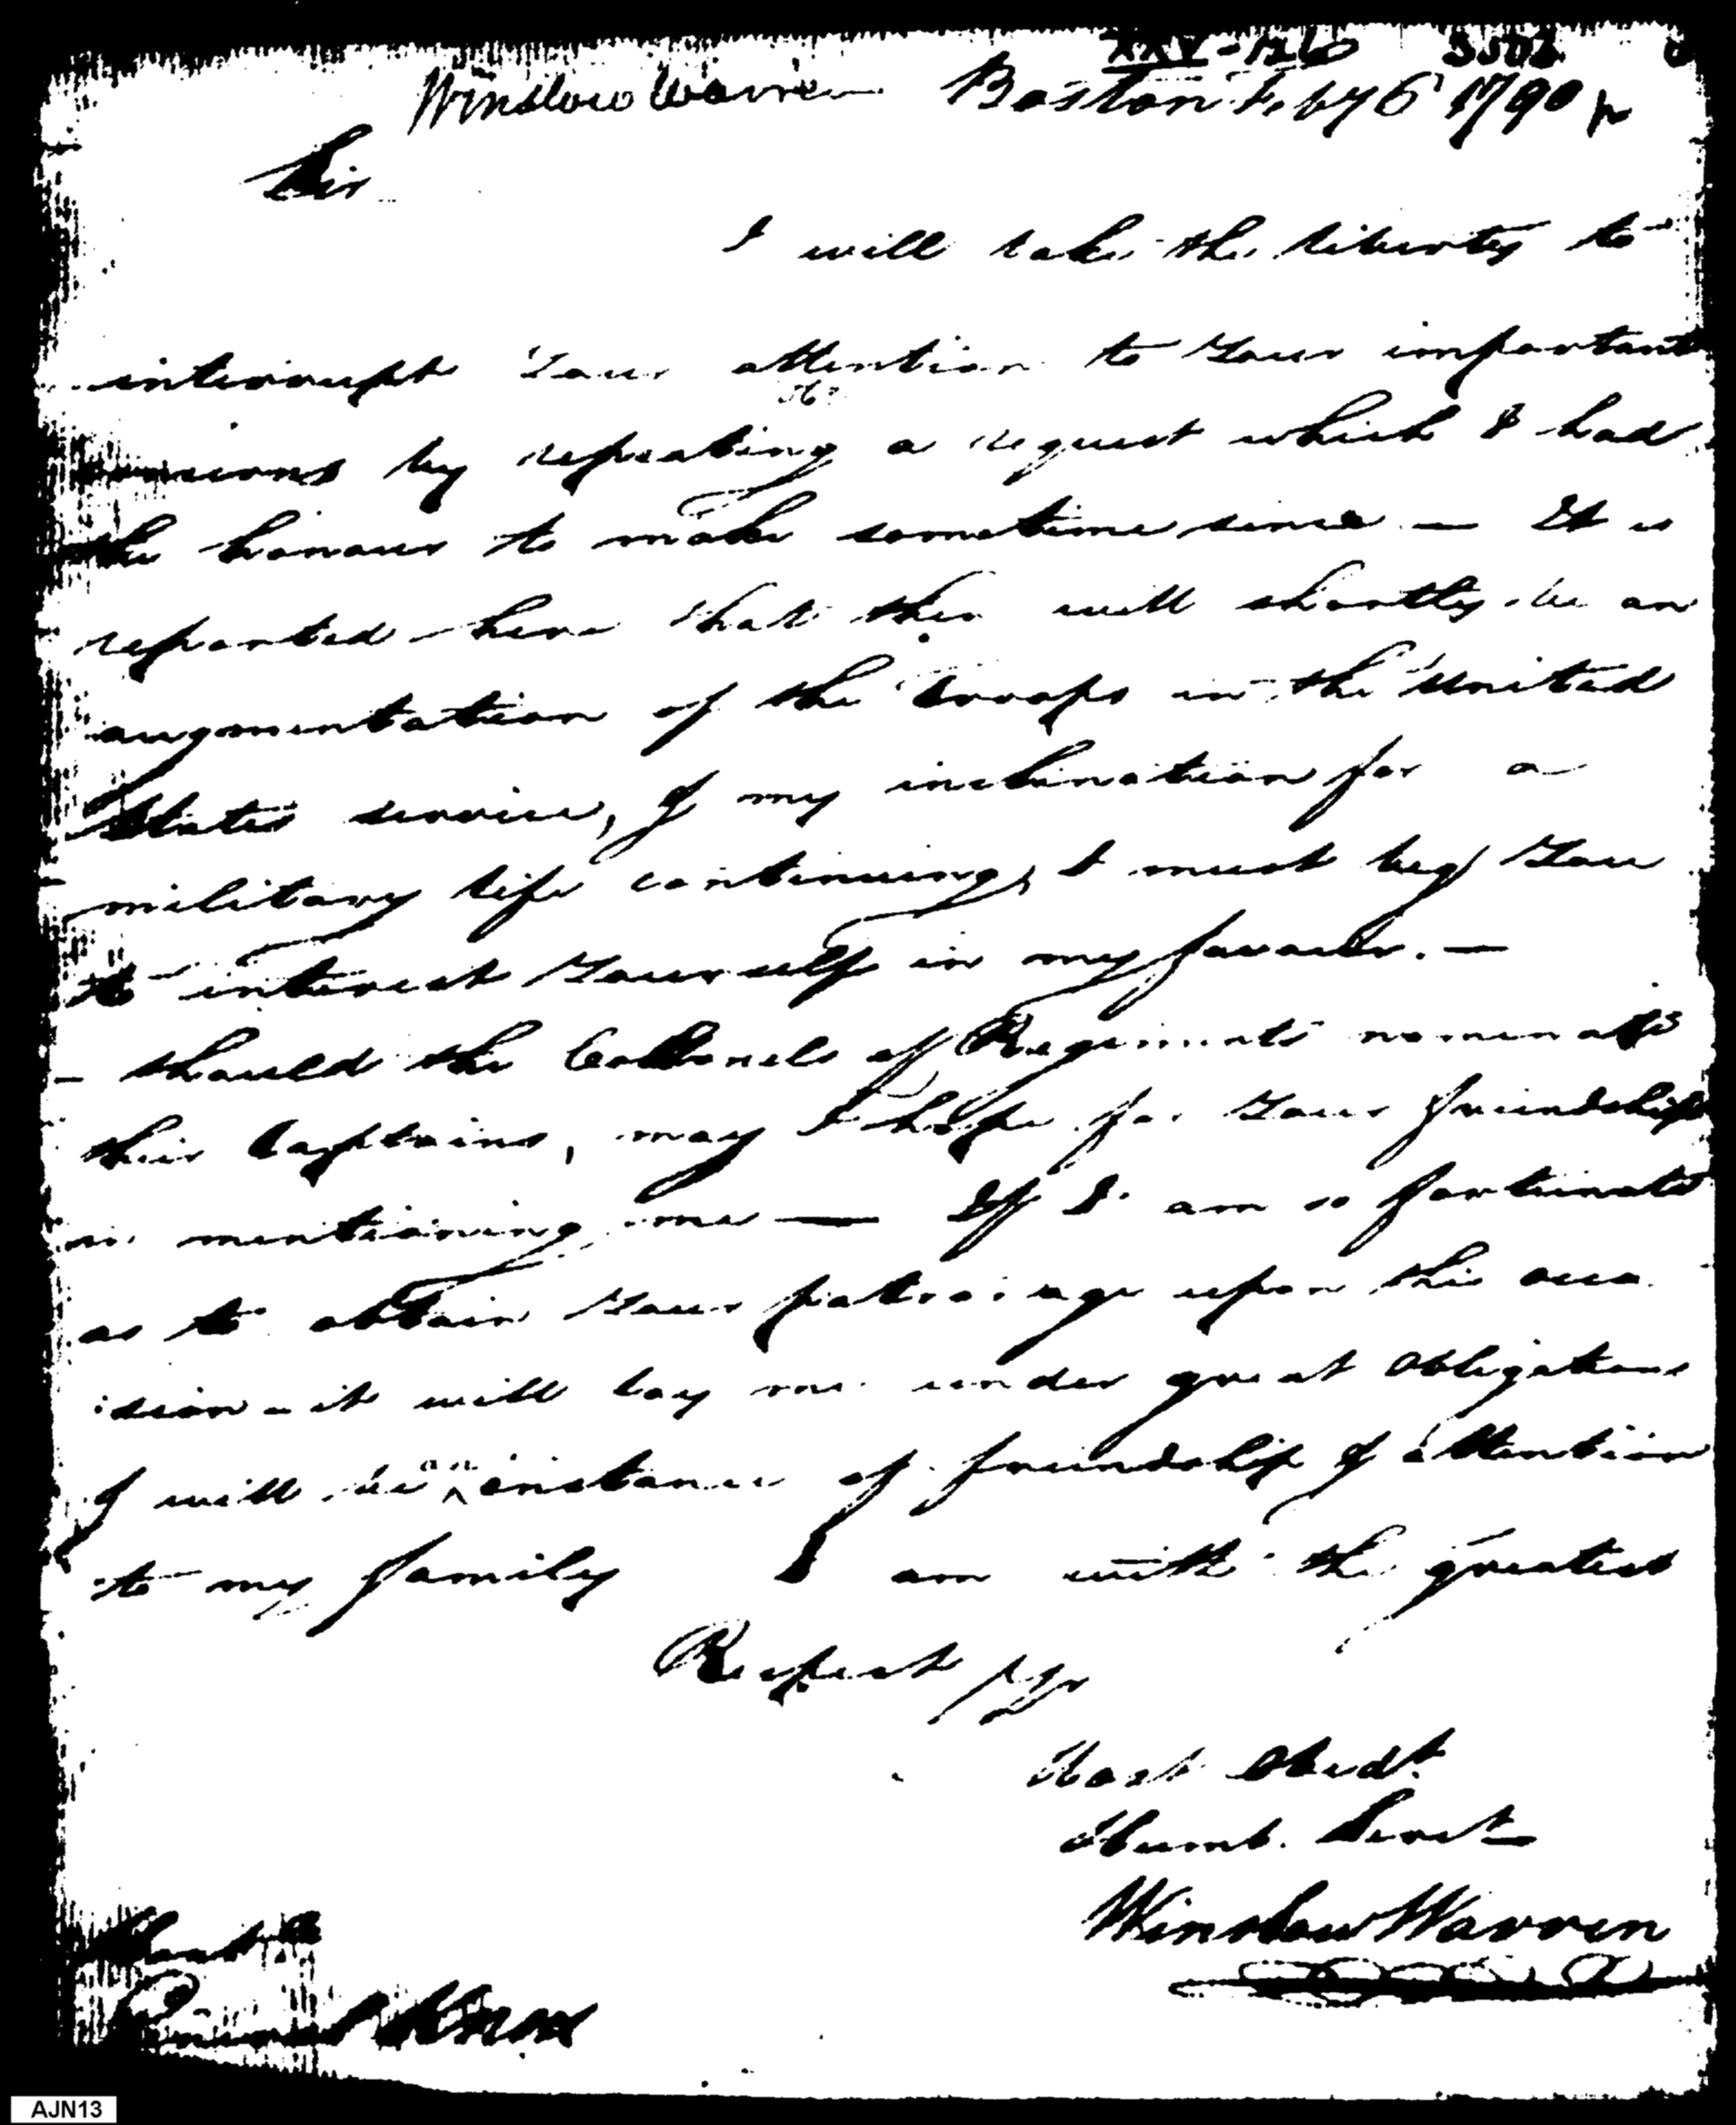 XXV-126 5502
Winslow Warren Boston Feby 6 1790
Sir
I will take the liberty to
interrupt Your attention to Your important
by repeating a request which I had
the honour to make sometime since — It is
reported here that ther will shortly be an
augmentation of the troops in the United
States service, & my inclination for a
military life continuing, I must beg You
to interest Yourself in my favour. —
— should the Collonels of Regiments nominate
their Captains, may I hope for Your friendship
in mentioning me — If I am so fortunate
as to obtain Your patronage upon this occa
sion - it will lay me under great obligations
& will be an instance of friendship & attention
to my family I am with the greatest
Respect Yr
Most Obedt.
Humb. Servt
Winslow Warren
General Knox
AJN13